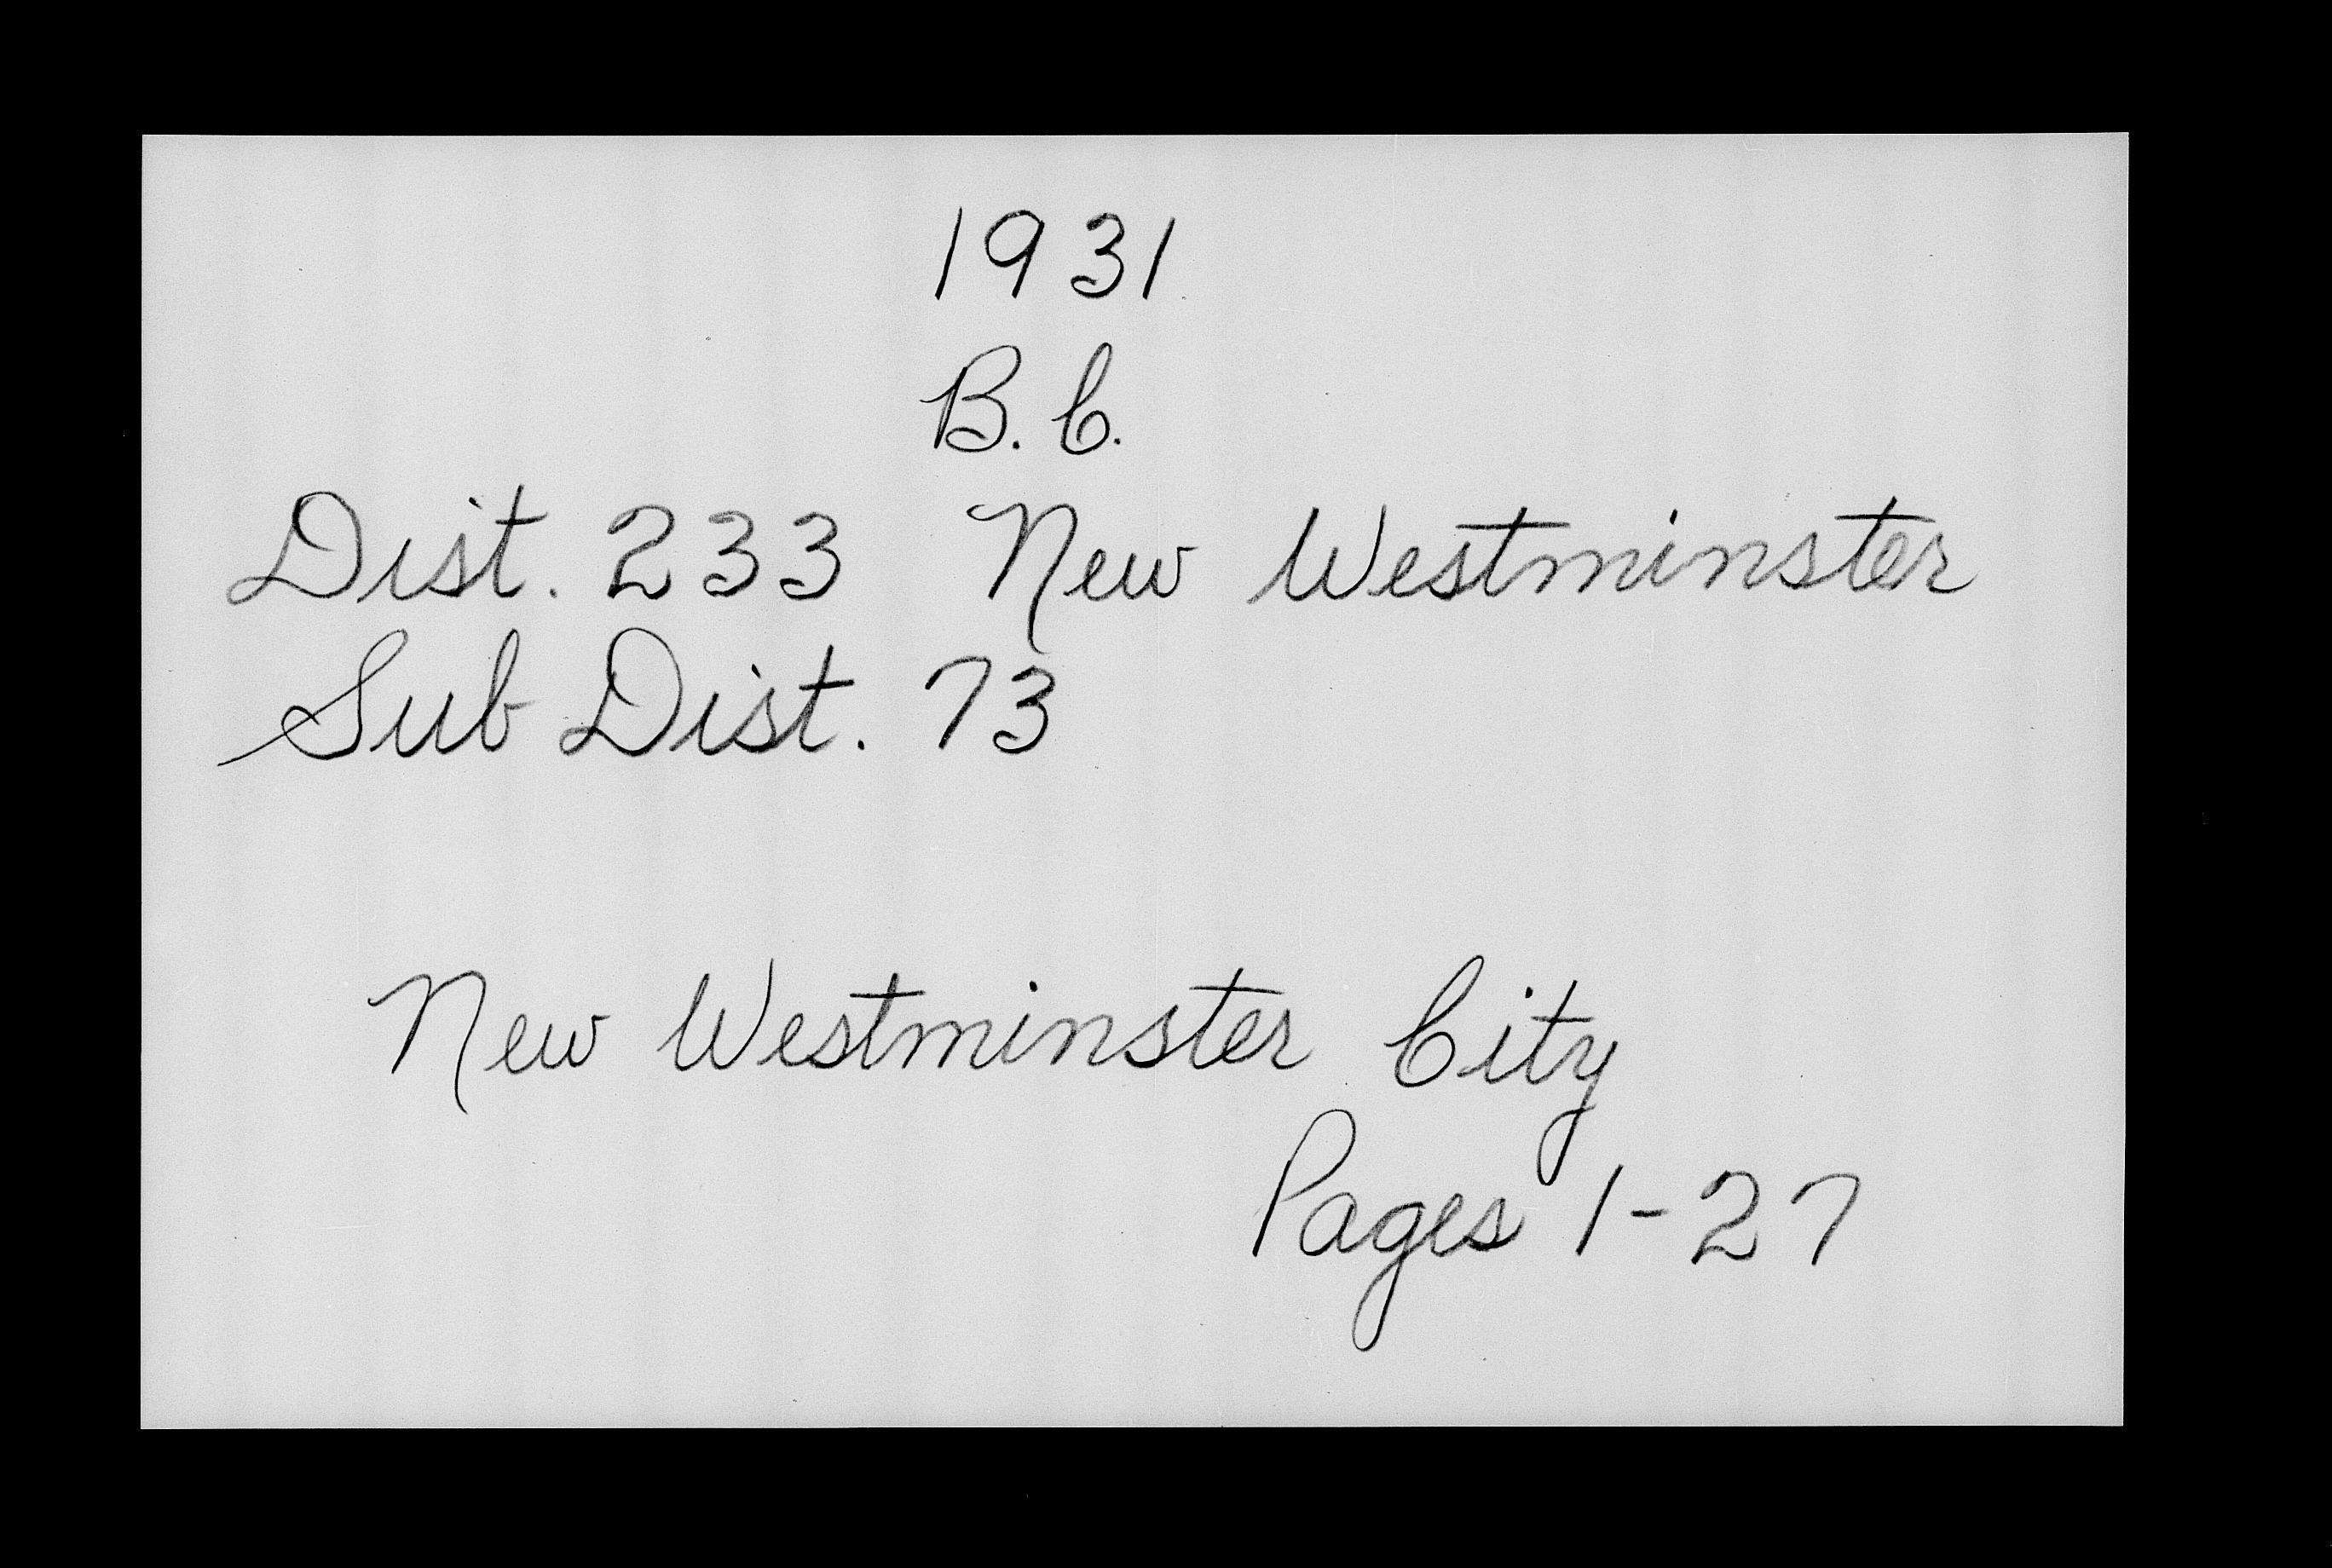 1931
B.C.
Dist. 233 New Westminster
Sub Dist. 73
New Westminster City
Pages 1-27